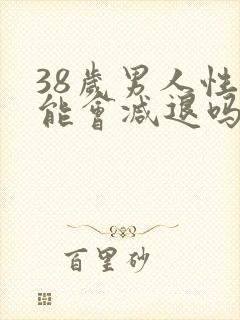 38歲男人性
能會減退吗
百里砂